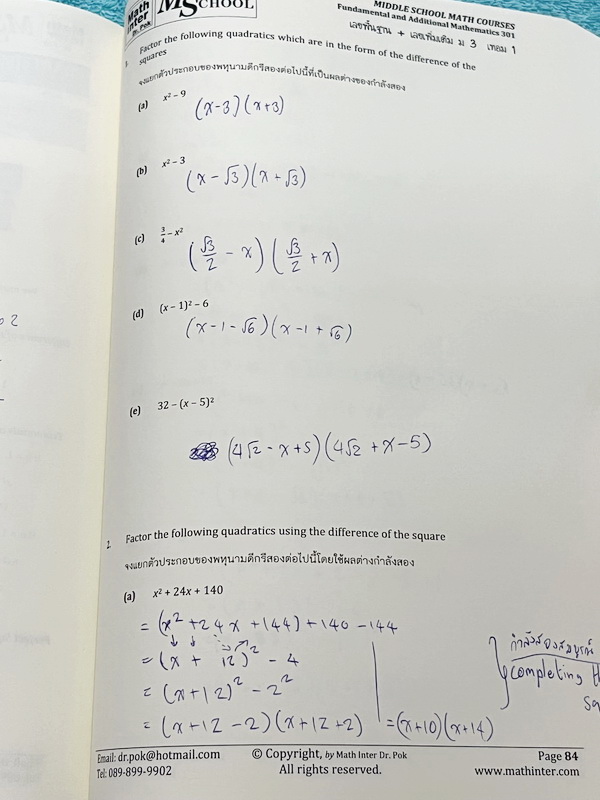 Math
Inter
Dr. Pok
MSCHOOL
MIDDLE SCHOOL MATH COURSES
Fundamental and Additional Mathematics 301
เลขพื้นฐาน + เลขเพิ่มเติม ม 3 เทอม 1
Factor the following quadratics which are in the form of the difference of the
squares
จงแยกตัวประกอบของพหุนามดีกรีสองต่อไปนี้ที่เป็นผลต่างของกำลังสอง
(a) x² – 9
(x-3)(x+3)
(b) x² – 3
(x - √3)(x + √3)
(c) 3/4 – x²
(√3/2 - x)(√3/2 + x)
(d) (x – 1)² – 6
(x-1-√6)(x-1+√6)
(e) 32 – (x – 5)²
(4√2 - x+5)(4√2 + x-5)
2 Factor the following quadratics using the difference of the square
จงแยกตัวประกอบของพหุนามดีกรีสองต่อไปนี้โดยใช้ผลต่างกำลังสอง
(a) x² + 24x + 140
= (x² + 24x + 144) + 140 - 144
= (x + 12)² - 4
= (x+12)² - 2²
= (x+12-2)(x+12+2) = (x+10)(x+14)
กำลังสองสมบูรณ์
completing
Email: dr.pok@hotmail.com © Copyright, by Math Inter Dr. Pok Page 84
Tel: 089-899-9902 All rights reserved. www.mathinter.com